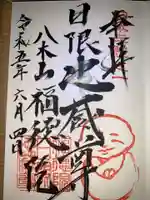 奉拝
日限地蔵尊
八木山 栖穂院
令和五年六月四日